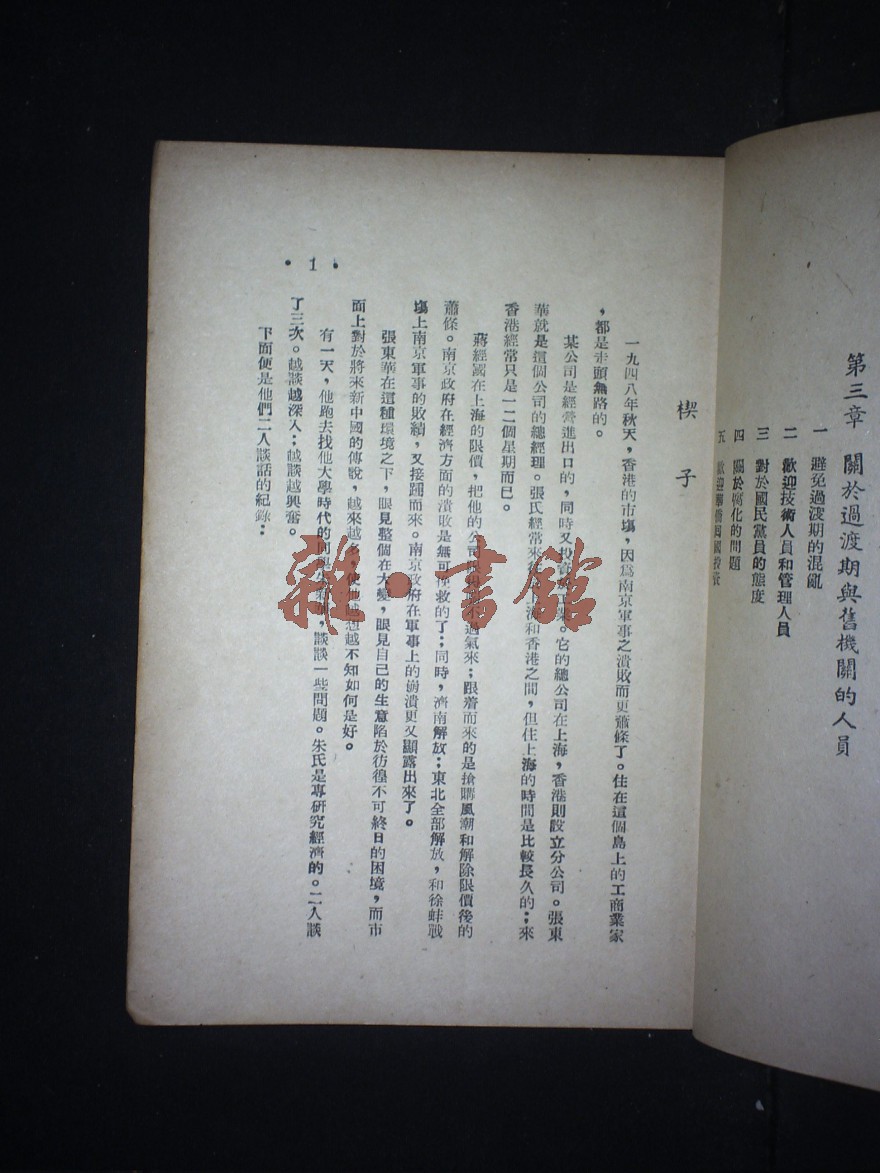 第三章 關於過渡期與舊機關的人員
一 避免過渡期的混亂
二 歡迎技術人員和管理人員
三 對於國民黨員的態度
四 關於腐化的問題
五 歡迎華僑回國投資
楔子
一九四八年秋天，香港的市塲，因爲南京軍事之潰敗而更蕭條了。住在這個島上的工商業家
，都是走頭無路的。
某公司是經營進出口的，同時又投資於工業。它的總公司在上海，香港則設立分公司。張東
華就是這個公司的總經理。張氏經常來往於上海和香港之間，但住上海的時間是比較長久的；來
香港經常只是一二個星期而已。
蔣經國在上海的限價，把他的公司不過氣來；跟着而來的是搶購風潮和解除限價後的
蕭條。南京政府在經濟方面的潰敗是無可挽救的了；同時，濟南解放；東北全部解放，和徐蚌戰
塲上南京軍事的敗績，又接踵而來。南京政府在軍事上的崩潰更又顯露出來了。
張東華在這種環境之下，眼見整個在大變，眼見自己的生意陷於彷徨不可終日的困境，而市
面上對於將來新中國的傳說，越來越多，使他越想越不知如何是好。
有一天，他跑去找他大學時代的同學朱，談談一些問題。朱氏是專研究經濟的。二人談
了三次。越談越深入；越談越興奮。
下面便是他們二人談話的紀錄：
•1•
雜·書館